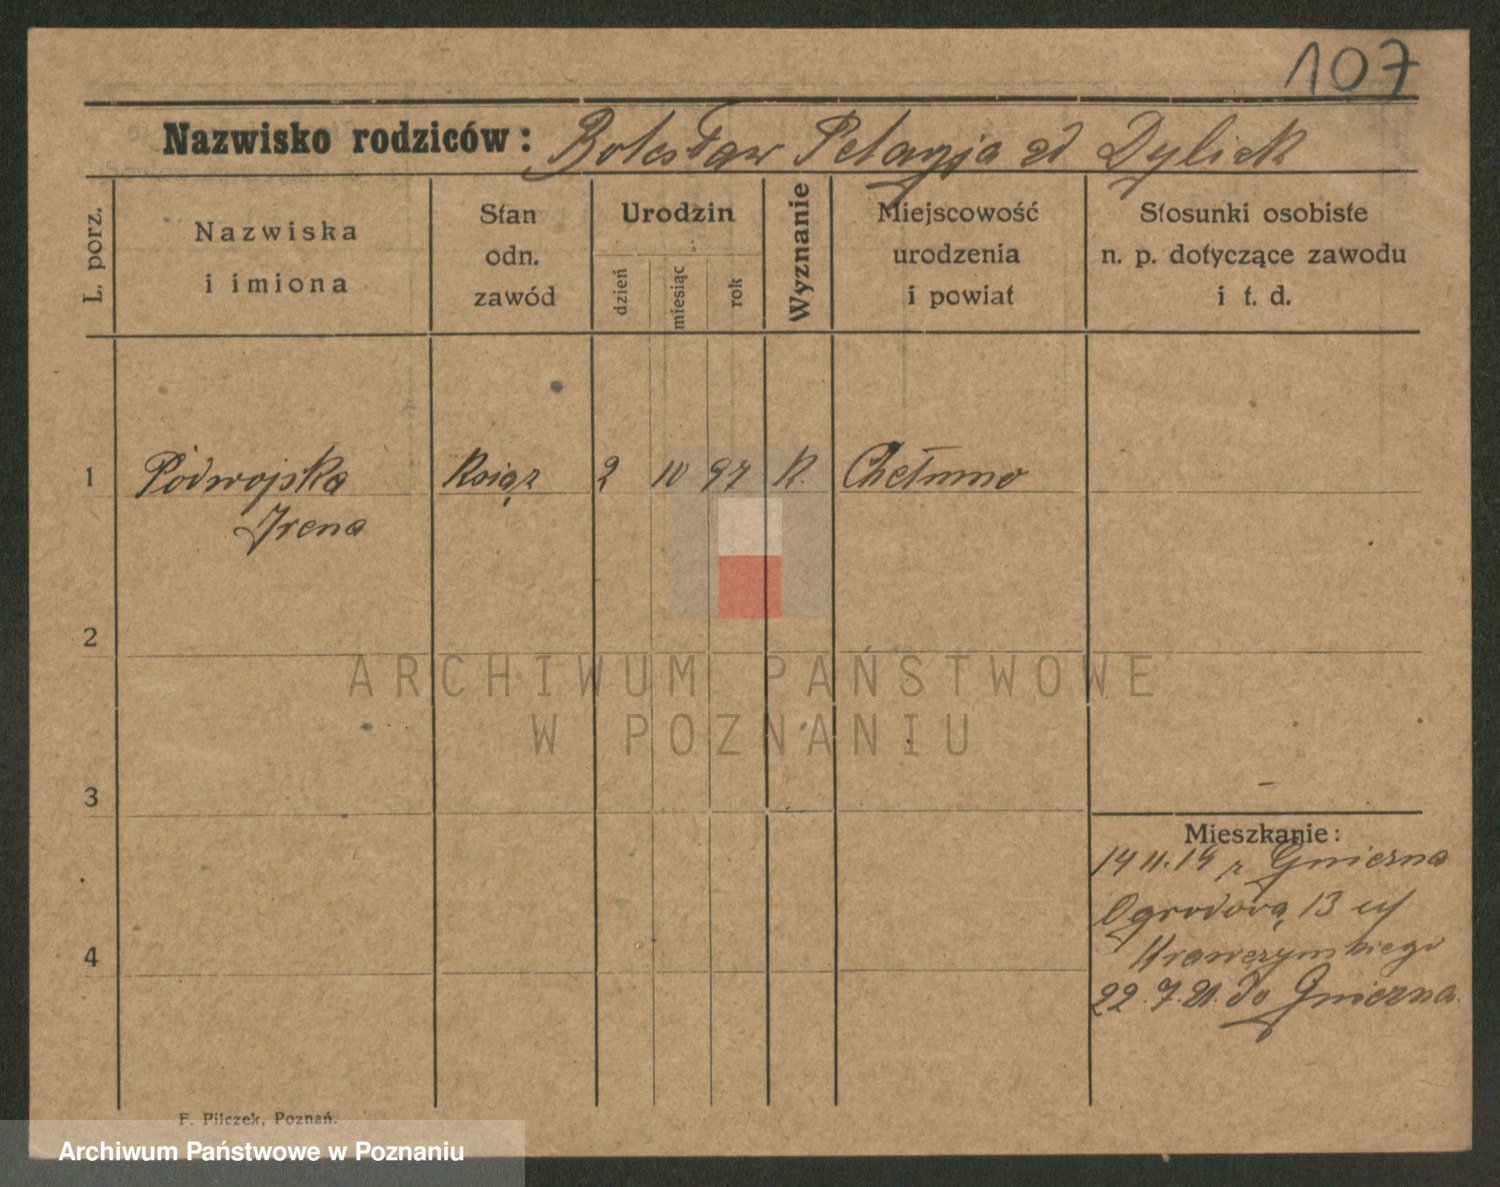 107
Nazwisko rodziców: Bolesław Pelagja zd Dyliek
L. porz.
Nazwiska
i imiona
Stan
odn.
zawód
Urodzin
dzień
miesiąc
rok
Wyznanie
Miejscowość
urodzenia
i powiat
Stosunki osobiste
n. p. dotyczące zawodu
i t. d.
1 Podwojska Książ 2 10 97 K. Chełmno
Irena
2
ARCHIWUM PAŃSTWOWE
W POZNANIU
3
Mieszkanie:
14 11.19 z Gniezna
Ogrodową 13 u/
4
22.7.21. do Gniezna.
F. Pilczek, Poznań.
Archiwum Państwowe w Poznaniu